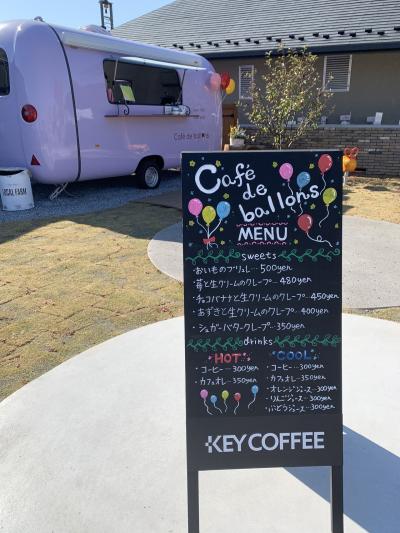 Café de ballons
LOCAL FARM
Café
de
ballons
MENU
sweets
おいものブリュレ…500yen
・苺と生クリームのクレープ…480yen
・チョコバナナと生クリームのクレープ…450yen
・あずきと生クリームのクレープ…400yen
・シュガーバタークレープ…350yen
drinks
HOT COOL
・コーヒー…300yen ・コーヒー…300yen
・カフェオレ…350yen ・カフェオレ…350yen
・オレンジジュース…300yen
・りんごジュース…300yen
・ぶどうジュース…300yen
KEY COFFEE